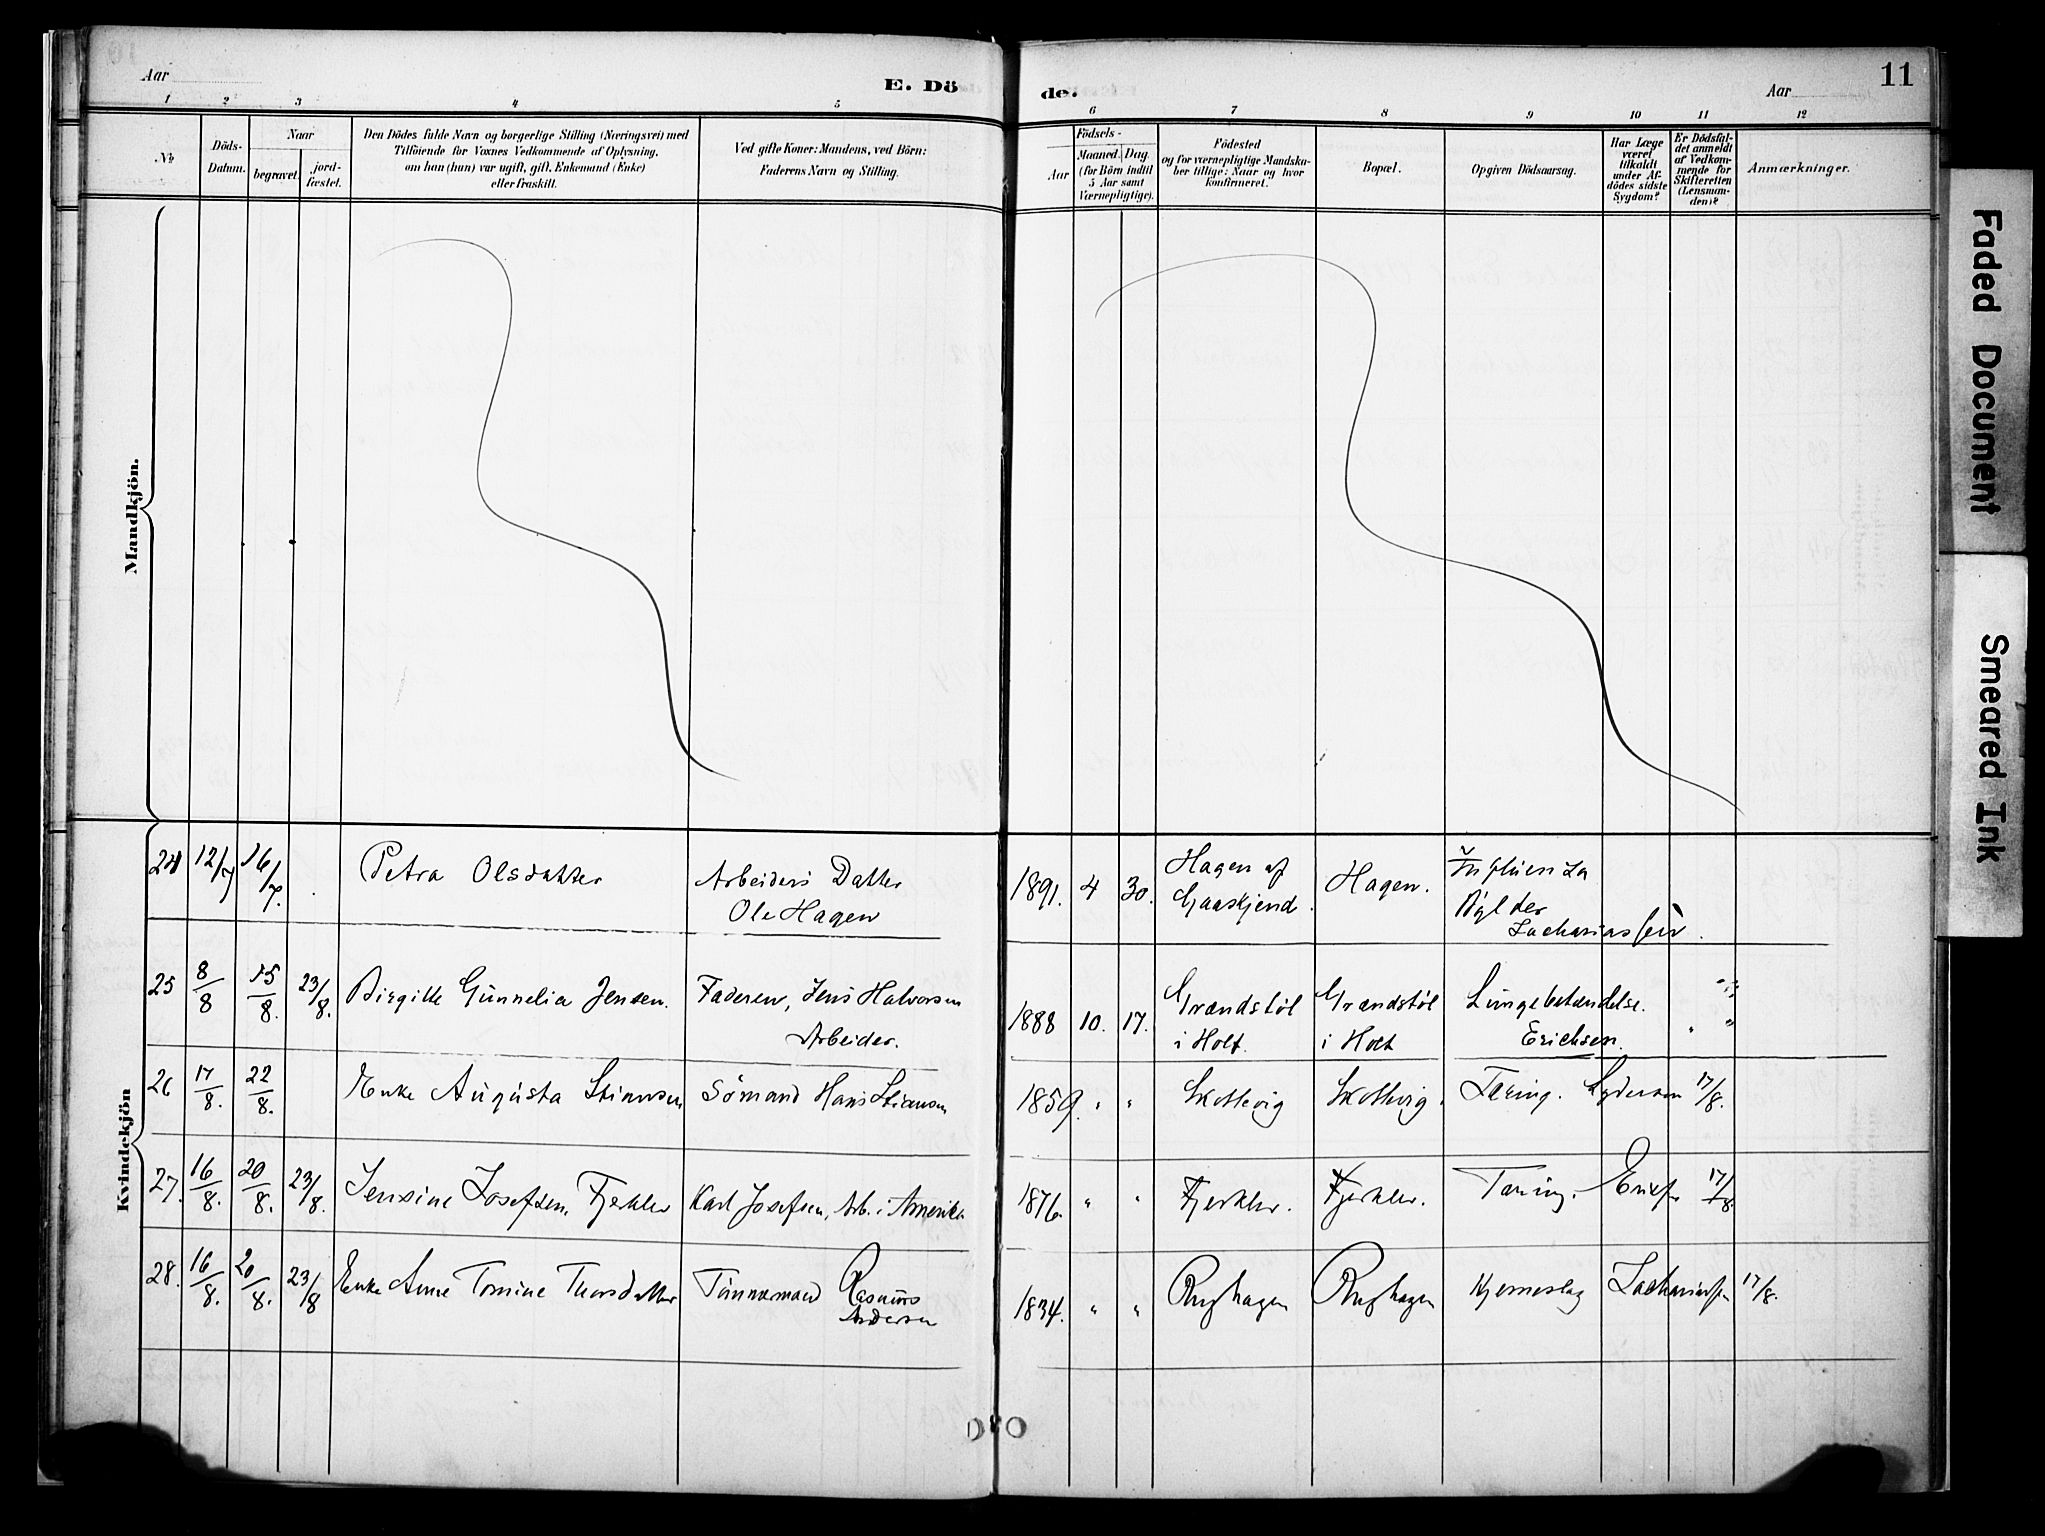 Aar
E. Dö
de.
Aar
11
1 2 3 4 5 6 7 8 9 10 11 12
No
Döds-
Datum.
Naar
begravet.
jord-
fæstet.
Den Dödes fulde Navn og borgerlige Stilling (Næringsvei) med
Tilföiende for Voxnes Vedkommende af Oplysning,
om han (hun) var ugift, gift, Enkemand (Enke)
eller fraskilt.
Ved gifte Koner: Mandens, ved Börn:
Faderens Navn og Stilling.
Födsels-
Aar
Maaned. Dag.
(for Börn indtil
5 Aar samt
Værnepligtige).
Födested
og for værnepligtige Mandska-
ber tillige: Naar og hvor
konfirmeret.
Bopæl.
Opgiven Dödsaarsag.
Har Læge
været
tilkaldt
under Af-
dödes sidste
Sygdom?
Er Dödsfal-
det anmeldt
af Vedkom-
mende for
Skifteretten
(Lensman-
den)?
Anmærkninger.
Mandkjön.
Kvindekjön
24 12/7 16/7. Petra Olsdatter Arbeiders Datter
Ole Hagen
1891. 4 30. Hagen af
Hagen.
Zachariassen.
25 8/8 15/8. 23/8. Birgitte Gunnelia Jensen. Faderen, Jens Halvorsen
Arbeider.
1888 10. 17. Grændstöl
i Holt.
Grændstöl
i Holt
Lungebetændelse.
Erichsen.
26 17/8. 22/8. Enke Augusta Stiansen Sömand Hans Stiansen
1859. " " Skottevig Skottevig. Tæring. 17/8.
27. 16/8. 20/8. 23/8. Jensine Josefsen, Fjerkler Karl Josefsen, Arb. i Amerika
1876. " " Fjerkler. Fjerkler. Tæring. 17/8.
28. 16/8. 20/8. 23/8 Enke Anne Tomine Thorsdatter Tömmermand Rasmus
Andersen
1834. " " Rughagen Rughagen Hjerneslag Zachariassen 17/8.
Faded Document
Smeared Ink